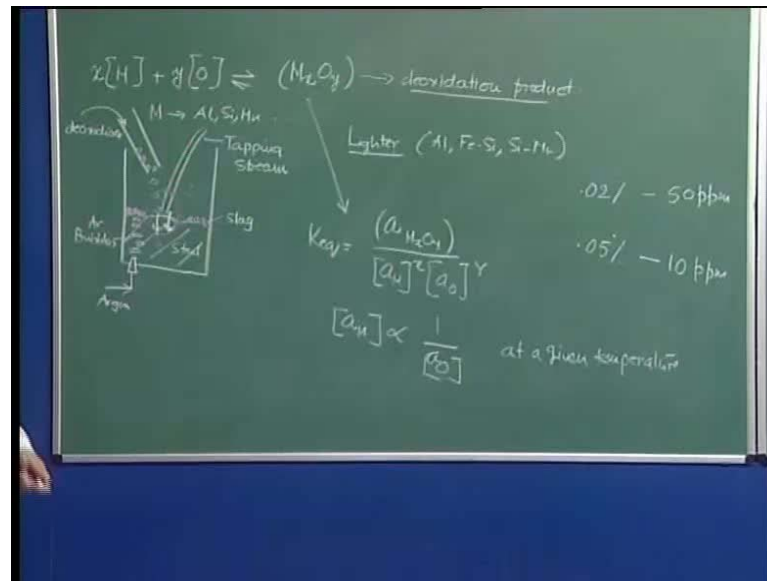 x[M] + y[O] ⇌ (MxOy) → deoxidation product
M → Al, Si, Mn
deoxidiser
Tapping
stream
Lighter (Al, Fe-Si, Si-Mn)
.02% - 50 ppm
Ar
Bubbles
Slag
Steel
Argon
Keqv = (aMxOy)
[aM]^x [aO]^y
.05% - 10 ppm
[aM] ∝ 1
[aO]
at a given temperature